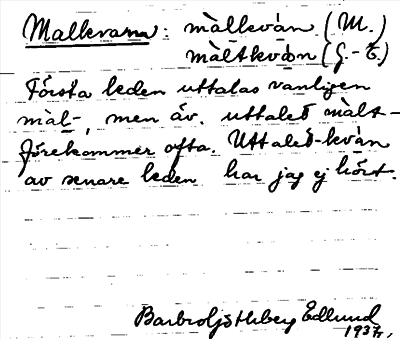 Malkvarn: màlkván. (M.)
màltkvàn (G.-E.)
Första leden uttalas vanligen
màl-, men äv. uttalet màlt-
förekommer ofta. Uttalet -kván
av senare leden har jag ej hört.
Edlund
1937.